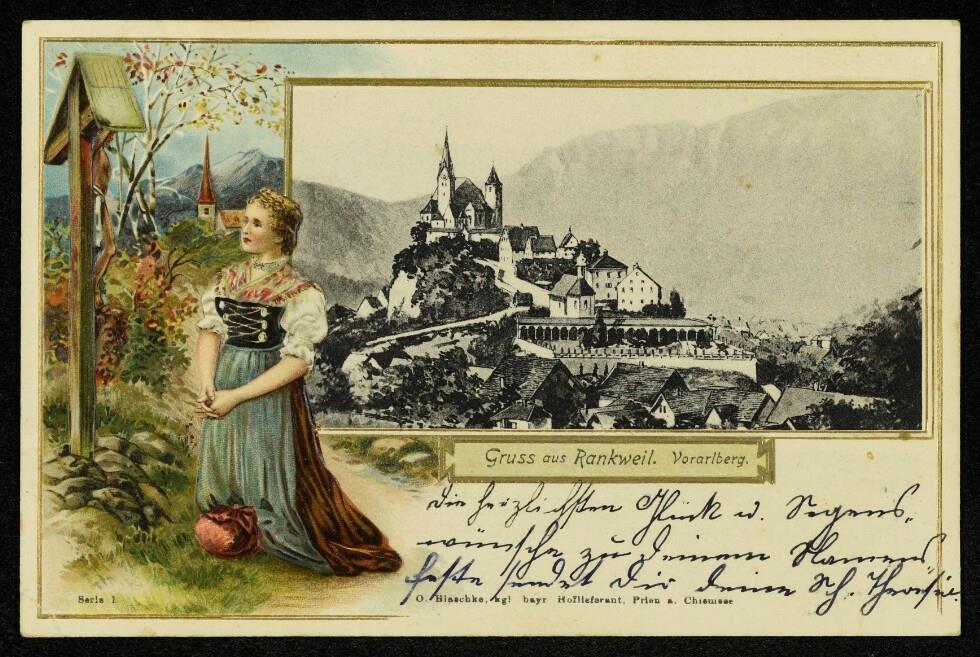 Gruss aus Rankweil. Vorarlberg.
die herzlichsten Glück u. Segens-
wünsche zu deinem Namens
feste sendet Dir deine Sch. Theresia.
Serie 1
O. Blaschke, kgl bayr Hoflieferant, Prien a. Chiemsee